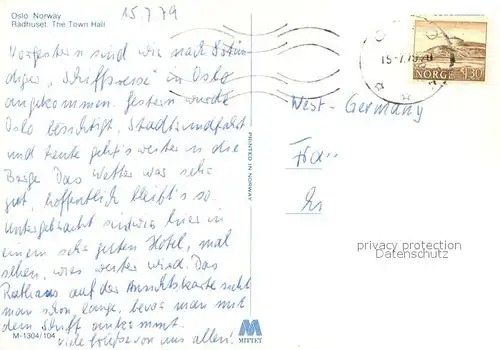 Oslo Norway
Rådhuset. The Town Hall
15.7.79
Vorgestern sind wir nach 8stün
diger "Schiffsreise" in Oslo
angekommen. Gestern wurde
Oslo besichtigt, Stadtrundfahrt
und heute geht's weiter in die
Berge. Das Wetter war sehr
gut, hoffentlich bleibt's so.
Untergebracht sind wir hier in
einem sehr guten Hotel, mal
sehen, wies weiter wird. Das
Rathaus auf der Ansichtskarte sieht
man schon lange, bevor man mit
dem Schiff ankommt.
Viele Grüße von uns allen!
M-1304/104
PRINTED IN NORWAY
MITTET
NORGE 1.30
West-Germany
Frau
privacy protection
Datenschutz